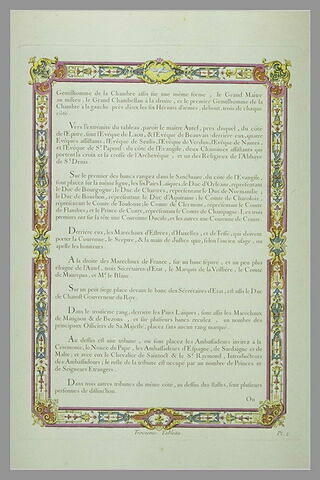 Gentilhomme de la Chambre assis sur une même forme, le Grand Maitre
au milieu, le Grand Chambellan à la droite, et le premier Gentilhomme de la
Chambre à la gauche près d'eux les six Hérauts d'armes, debout, trois de chaque
côté.
Vers l'extrémité du tableau, paroit le maitre Autel, près duquel, du côté
de l'Epitre, sont l'Evêque de Laon, & l'Evêque de Beauvais derriere eux, quatre
Evêques assistants, l'Evêque de Senlis, l'Evêque de Verdun, l'Evêque de Nantes,
et l'Evêque de St. Papoul: du côté de l'Evangile, deux Chanoines assistants qui
portent la croix et la crosse de l'Archevêque, et un des Religieux de l'Abbaye
de St. Denis.
Sur le premier des bancs rangés dans le Sanctuaire, du côté de l'Evangile,
sont placés sur la même ligne, les six Pairs Laïques, le Duc d'Orleans, représentant
le Duc de Bourgogne, le Duc de Chartres, représentant le Duc de Normandie,
le Duc de Bourbon, représentant le Duc d'Aquitaine; le Comte de Charolois,
représentant le Comte de Toulouse, le Comte de Clermont, représentant le Comte
de Flandres, et le Prince de Conty, représentant le Comte de Champagne. Les trois
premiers ont sur la tête une Couronne Ducale, et les autres une Couronne de Comte.
Derriere eux, les Maréchaux d'Estrées, d'Huxelles, et de Tessé, qui doivent
porter la Couronne, le Sceptre, & la main de Justice que, selon l'ancien usage, on
apelle les honneurs.
A la droite des Marechaux de France, sur un banc séparé, et un peu plus
éloigné de l'Autel, trois Secrétaires d'Etat, le Marquis de la Vrilliere, le Comte
de Maurepas, et Mr. le Blanc.
Sur un petit siege placé devant le banc des Secrétaires d'Etat, est assis le Duc
de Charost Gouverneur du Roy.
Dans le troisieme rang, derriere les Pairs Laïques, sont assis les Marechaux
de Matignon & de Bezons, et sur plusieurs bancs reculés, un nombre des
principaux Officiers de Sa Majesté, placés sans aucun rang marqué.
Au dessus est une tribune, où sont placés les Ambassadeurs invités à la
Cérémonie, le Nonce du Pape, les Ambassadeurs d'Espagne, de Sardaigne et de
Malte; et avec eux le Chevalier de Sainctot & le Sr. Raymond, Introducteurs
des Ambassadeurs; le reste de la tribune est occupé par un nombre de Princes et
de Seigneurs Etrangers.
Dans trois autres tribunes du même côté, au dessus des stalles, sont plusieurs
personnes de distinction.
Ou
Troisieme Tableau
Pl. 2